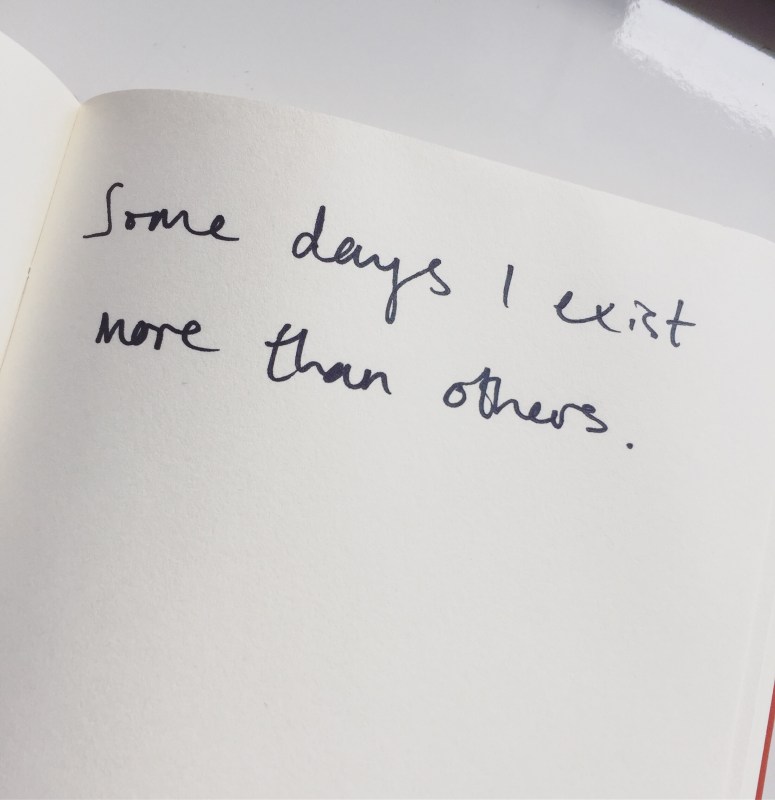 Some days I exist
more than others.